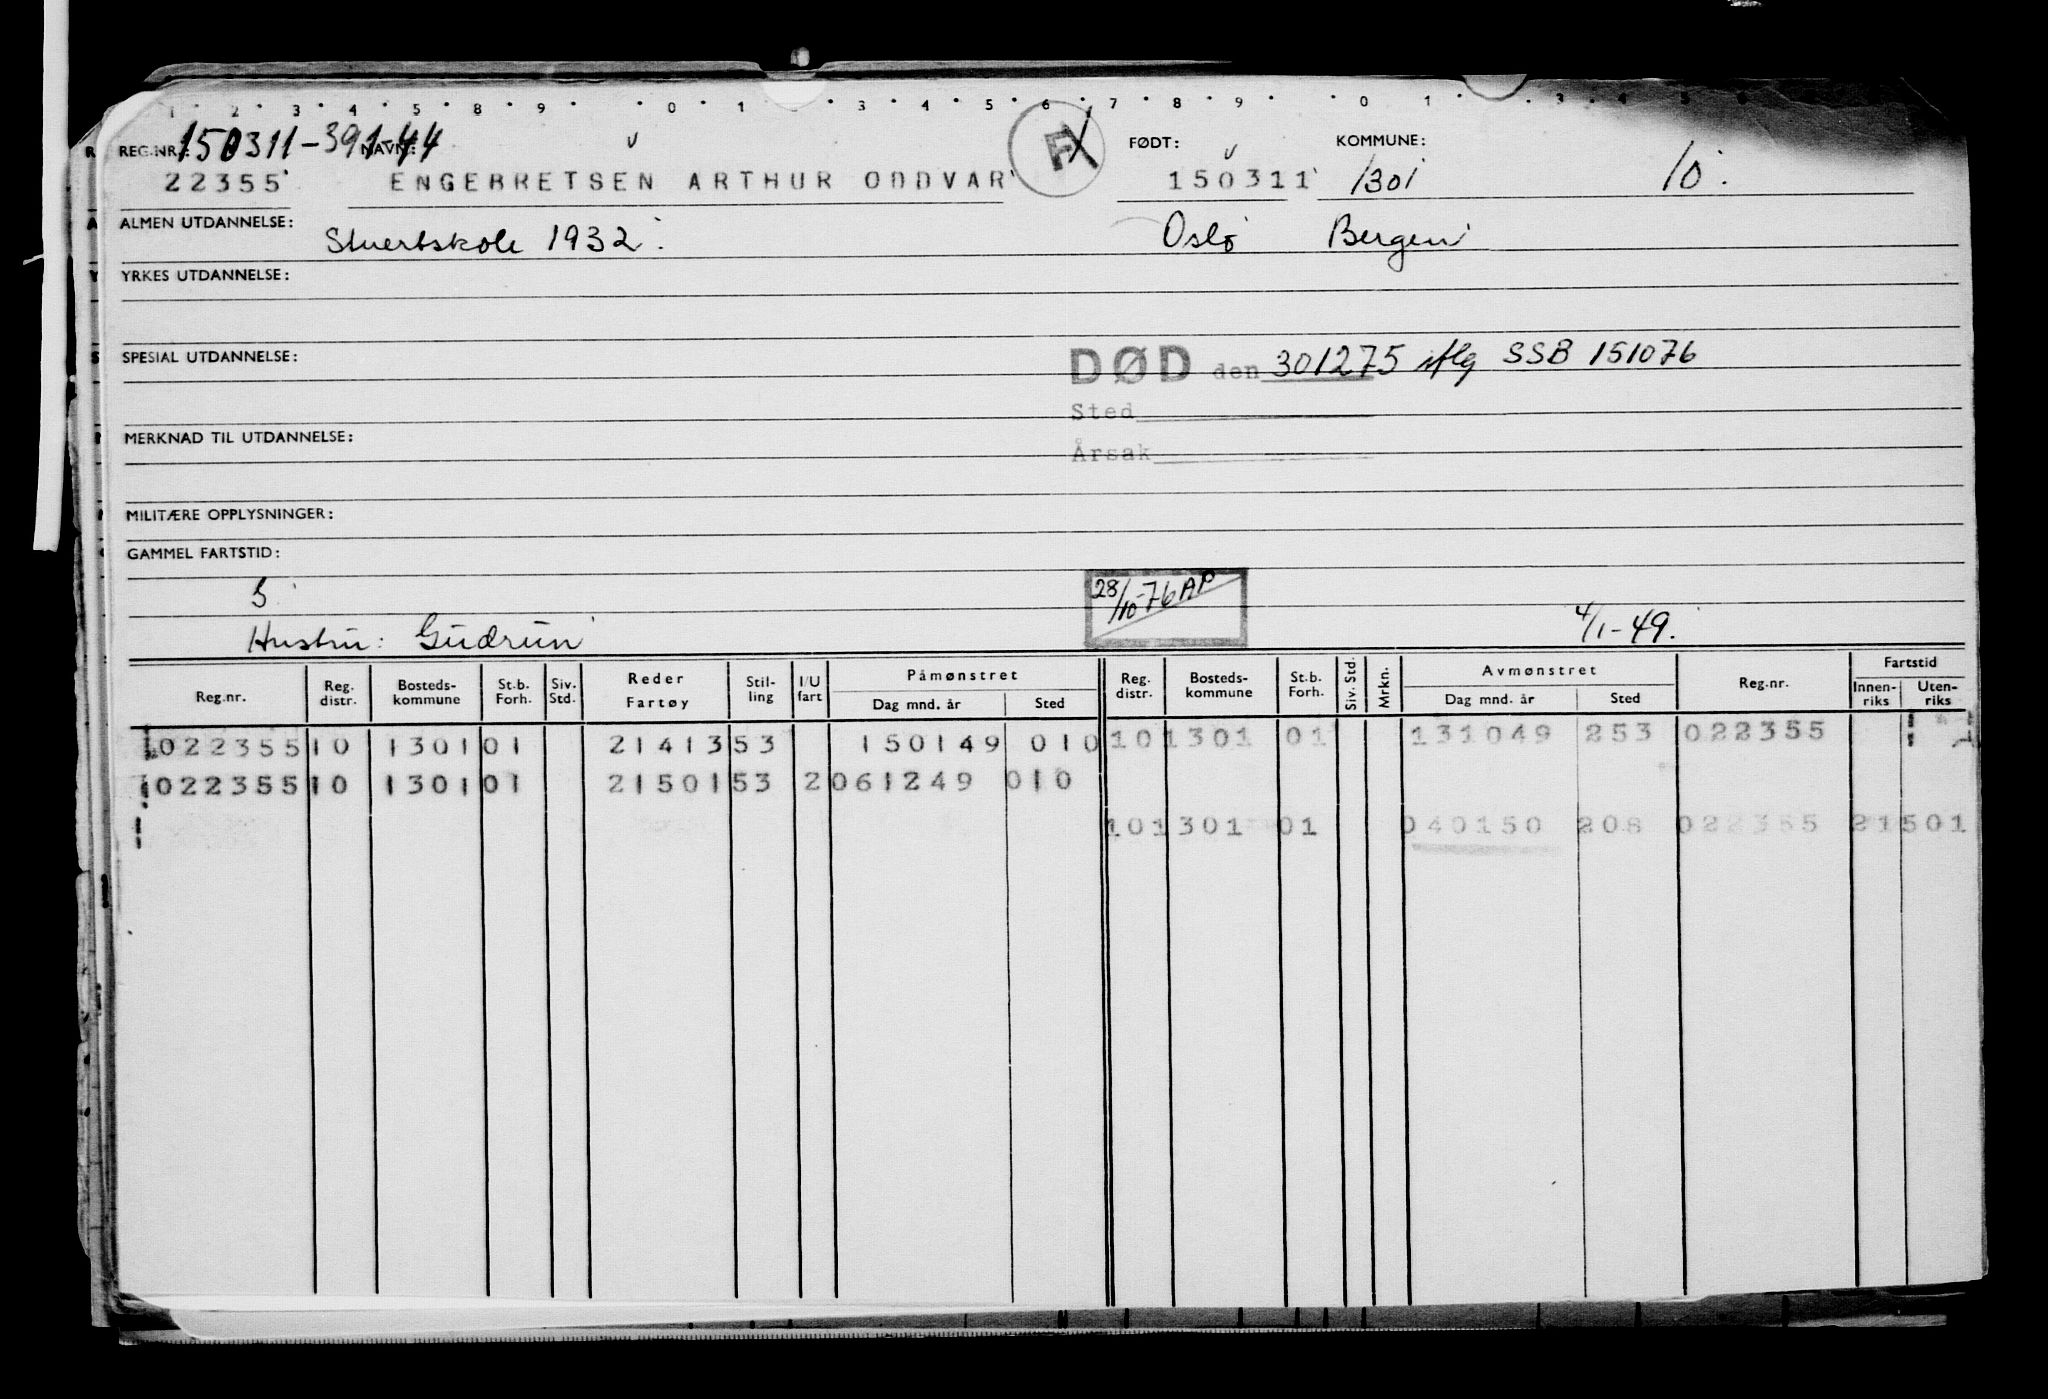 1 2 3 4 5 8 9 0 1 3 4 5 6 7 8 9 0 1 3 4 5
REG.NR.: 150311-39144 NAVN: FØDT: KOMMUNE:
22355 ENGEBRETSEN ARTHUR ODDVAR 150311 1301 10.
ALMEN UTDANNELSE: Stuertskole 1932. Oslo Bergen
YRKES UTDANNELSE:
SPESIAL UTDANNELSE: DØD den 301275 iflg SSB 151076
Sted
MERKNAD TIL UTDANNELSE:
Årsak
MILITÆRE OPPLYSNINGER:
GAMMEL FARTSTID:
5 28/10-76 AP
Hustru: Gudrun 4/1-49.
Reg.nr. Reg. distr. Bosteds-kommune St.b. Forh. Siv. Std. Reder Fartøy Stil-ling I/U fart Påmønstret Dag mnd. år Sted Reg. distr. Bosteds-kommune St.b. Forh. Siv. Std. Mrkn. Avmønstret Dag mnd. år Sted Reg.nr. Fartstid Innen-riks Uten-riks
022355 10 1301 01 21413 53 150149 010 10 1301 01 131049 253 022355
022355 10 1301 01 21501 53 2 061249 010
10 1301 01 040150 208 022355 21501